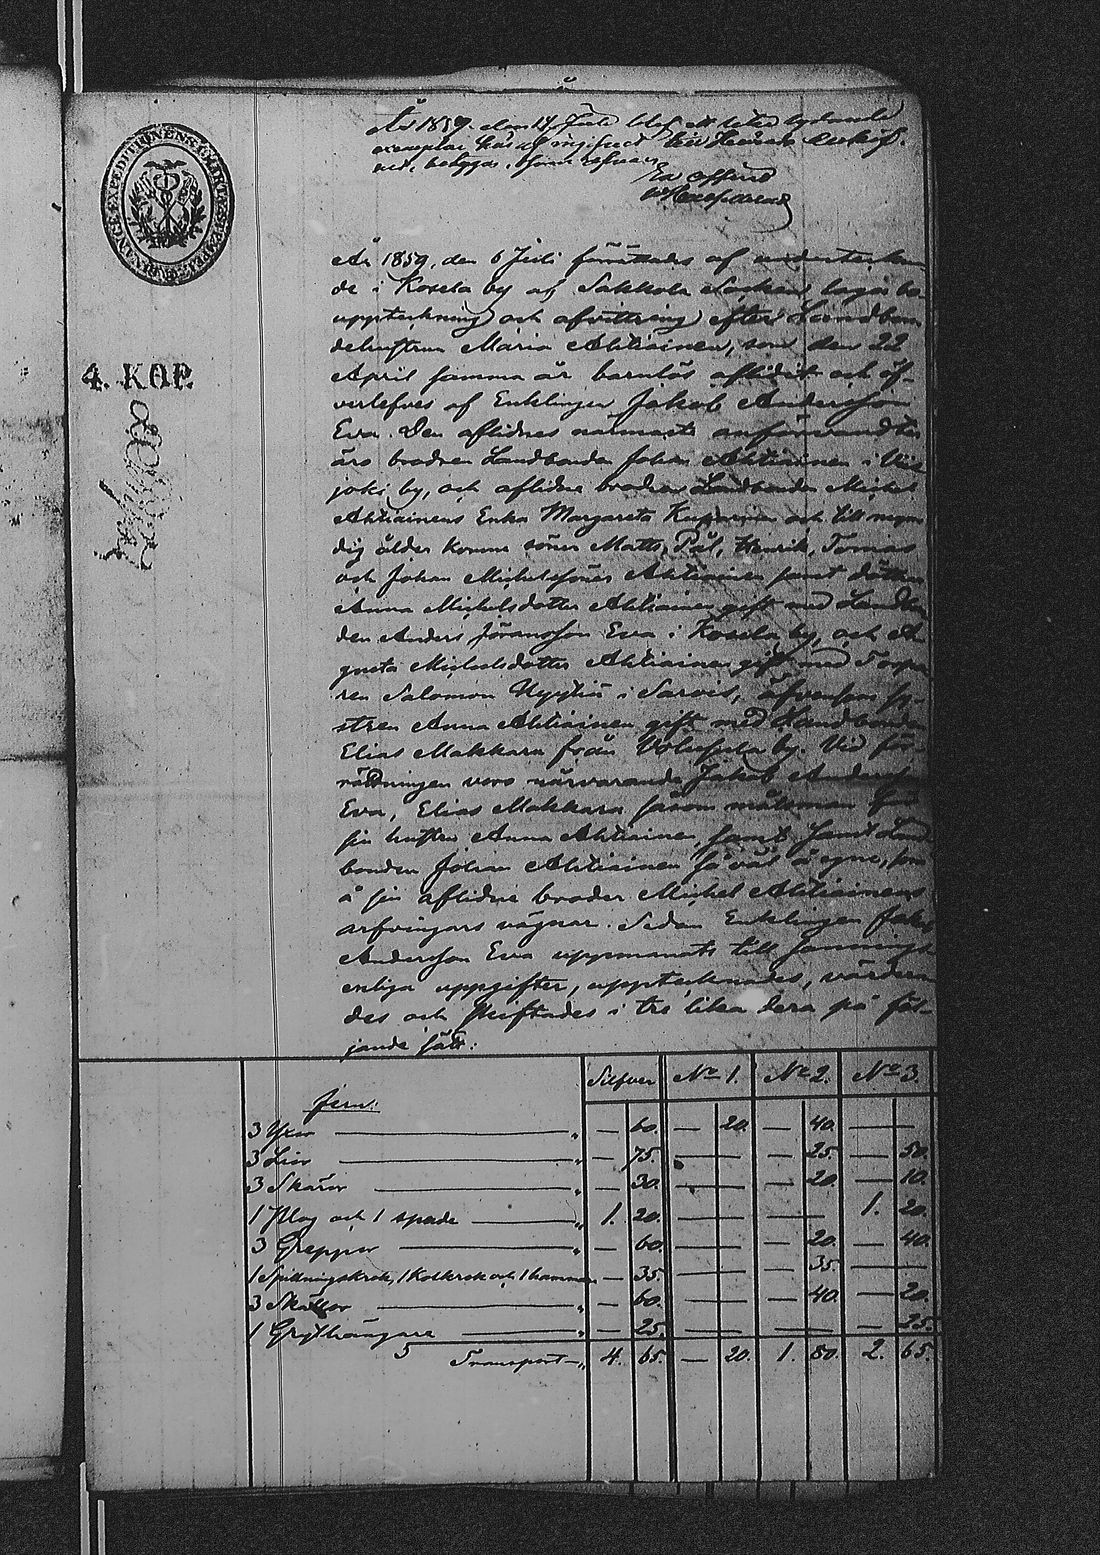 År 1859 den 14 Juli blef ett lika lydande
exemplar häraf ingifvet
År 1859, den 6 Juli förrättades af underteckna
de i Kosela by af Sakkola Socken laga bo
uppteckning och afvittring efter Landbon
dehustrun Maria Ahtiainen, som den 22
April samma år barnlös aflidit och öf-
verlefves af Enklingen Jakob Andersson
Eva. Den aflidnes närmaste anförvandter
äro brodren Landbonden Johan Ahtiainen i Viis
joki by, och aflidne brodren Landbonden Michel
Ahtiainens Enka Margareta Kuparin och till myn
dig ålder komne söner Matts, Pål, Henrik, Tomas
och Johan Michelssöner Ahtiainen samt döttrar
Anna Michelsdotter Ahtiainen gift med Landbon
den Anders Jöransson Eva i Kosela by, och A
gneta Michelsdotter Ahtiainen gift med Torpa
ren Salomon i Sarvis, äfvensom sy-
stren Anna Ahtiainen gift med Landbonden
Elias Makkara från by. Vid för-
rättningen voro närvarande Jakob Andersson
Eva, Elias Makkara såsom målsman för
sin hustru Anna Ahtiainen, samt Land
bonden Johan Ahtiainen så väl å egne, som
å sin aflidne broder Michel Ahtiainens
arfvingars vägnar. Sedan Enklingen Jakob
Andersson Eva uppmanats till sannings
enliga uppgifter, upptecknades, värdera
des och skiftades i tre lika delar på föl-
jande sätt:
4. КОП.
Silfver No 1. No 2. No 3.
Jern:
3 Yxor — 60. — 20. — 40. —
3 Liar — 75. — — 25. — 50.
3 Skäror — 30. — — 20. — 10.
1 Plog och 1 spade 1. 20. — — 1. 20.
3 Grepper — 60. — — 20. — 40.
1 Spikningskrok, 1 Kolkrok och 1 hammare — 35. — — 35. —
3 Skällor — 60. — — 40. — 20.
1 Grythängare — 25. — — — 25.
Transport 4. 65. — 20. 1. 80. 2. 65.